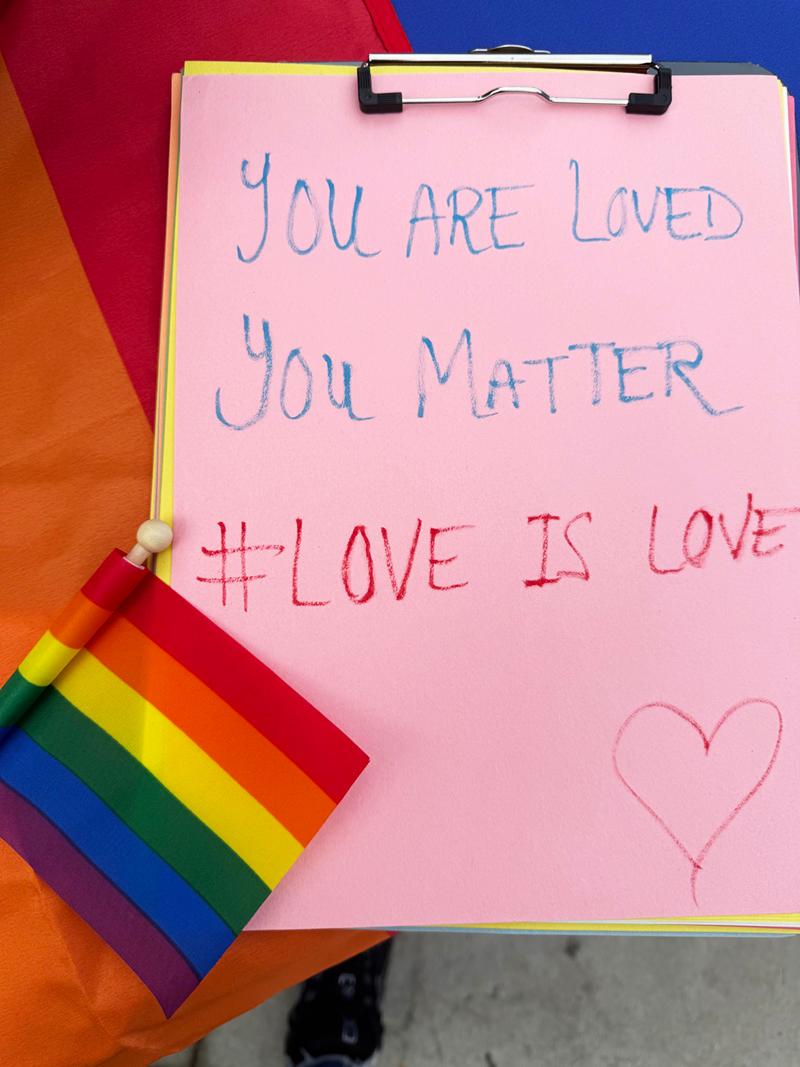 YOU ARE LOVED
YOU MATTER
#LOVE IS LOVE